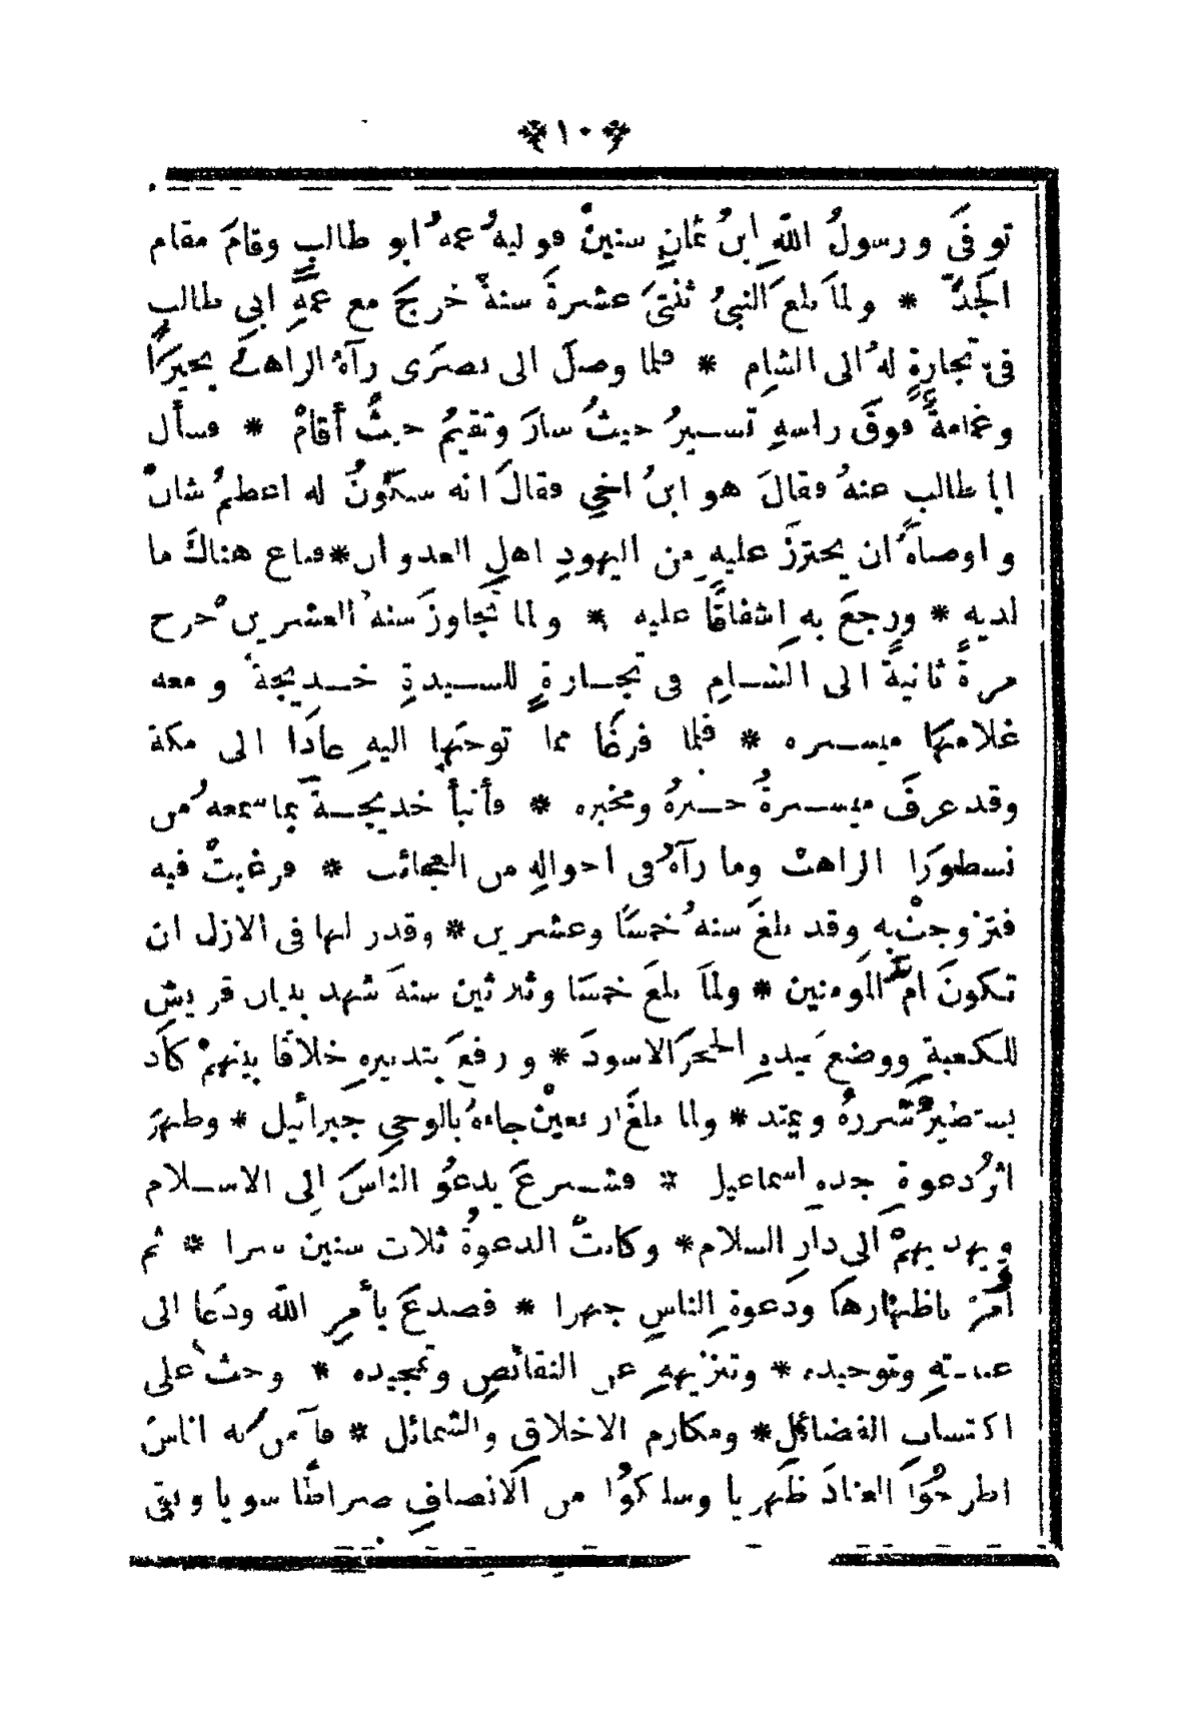 ﴿١٠﴾
توفىَ ورسولُ اللّهِ ابنُ ثمانِ سنينْ فوليهُ عمهُ ابو طالبٍ وقامَ مقام
الجَدّ * ولماَ بلغَ النبىُ ثنتىَ عشرةَ سنةً خرجَ مع عمهِ ابى طالبٍ
فى تجارةٍ لهُ الى الشامِ * فلما وصلَ الى بصرَى رآهُ الراهبُ بحيرَا
وغمامةً فوقَ راسهِ تسيرُ حيثُ سارَ وتقيمُ حيثُ أقامْ * فسأل
ابا طالب عنهُ فقالَ هو ابنُ اخى فقالَ انه سيكونُ له اعظمُ شانْ
واوصاهُ ان يحترزَ عليهِ من اليهودِ اهلِ العدوان * فباع هناكَ ما
لديهِ * ورجعَ بهِ اشفاقًا عليه * ولما تجاوزَ سنهُ العشرين خرج
مرةً ثانيةً الى الشامِ فى تجارةٍ للسيدةِ خديجةَ ومعه
غلامهَا ميسره * فلما فرغَا مما توجهَا اليهِ عادَا الى مكة
وقد عرفَ ميسرةُ خبرهُ ومخبره * فأنبأ خديجةَ بما سمعهُ من
نسطورَا الراهبْ وما رآهُ فى احوالهِ من العجائب * فرغبتْ فيه
فتزوجتْ بهِ وقد بلغَ سنهُ خمسًا وعشرين * وقدر لها فى الازل ان
تكونَ امَّ المومنين * ولماَ بلغَ خمسًا وثلاثين سنةَ شهد بنيان قريشٍ
للكعبةِ ووضعَ بيدهِ الحجرَ الاسودَ * ورفعَ بتدبيرهِ خلافًا بينهمْ كاد
يستطيرُ شررهُ ويمتد * ولما بلغَ اربعينْ جاءهُ بالوحىِ جبرائيل * وظهرَ
اثرُ دعوةِ جدهِ اسماعيل * فشرعَ يدعُو الناسَ الى الاسلام
ويهديهمْ الى دارِ السلام * وكانتْ الدعوةُ ثلاث سنين سرا * ثم
أُمرَ باظهارهَا ودعوةِ الناسِ جهرا * فصدعَ بأمرِ اللّه ودعَا الى
عبادتهِ وتوحيده * وتنزيههِ عن النقائصِ وتمجيده * وحثَ على
اكتسابِ الفضائل * ومكارم الاخلاقِ والشمائل * فآمنَ به اناسٌ
اطرحُوا العنادَ ظهريا وسلكوُا من الانصافِ صراطًا سويا وبقى